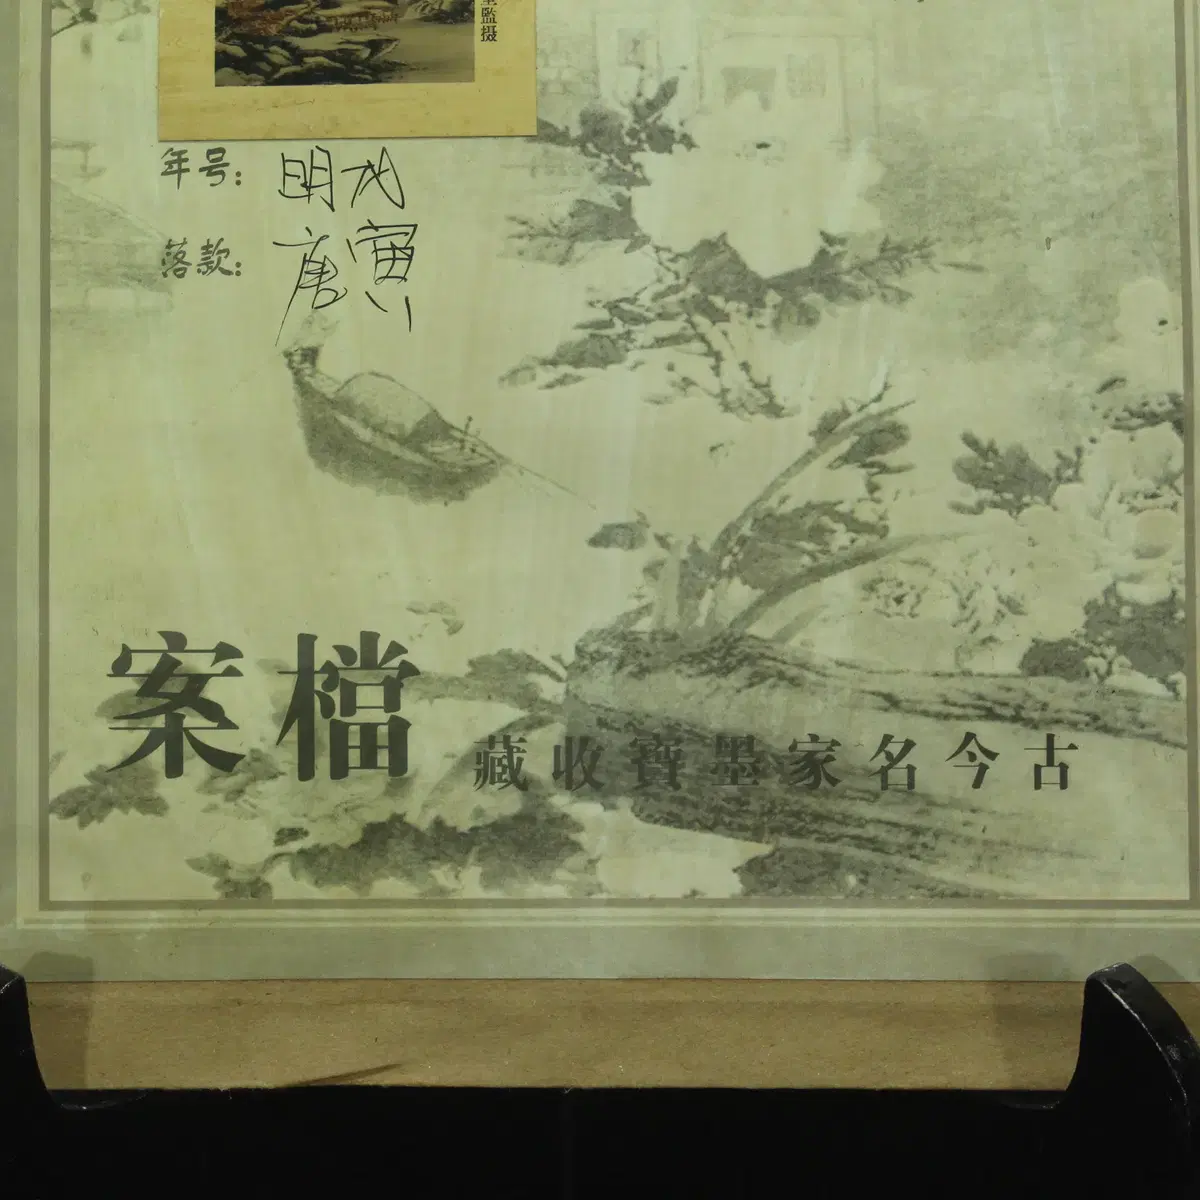 監摄
年号：明代
落款：唐寅
檔案
古今名家墨寶收藏